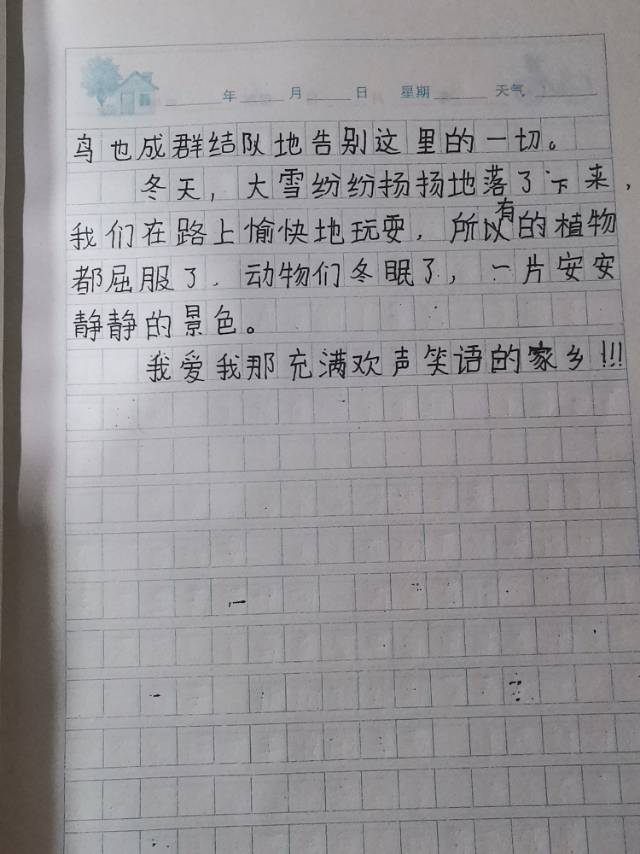 年 月 日 星期 天气
鸟也成群结队地告别这里的一切。
冬天，大雪纷纷扬扬地落了下来，
我们在路上愉快地玩耍，所以有的植物
都屈服了．动物们冬眠了，一片安安
静静的景色。
我爱我那充满欢声笑语的家乡!!!